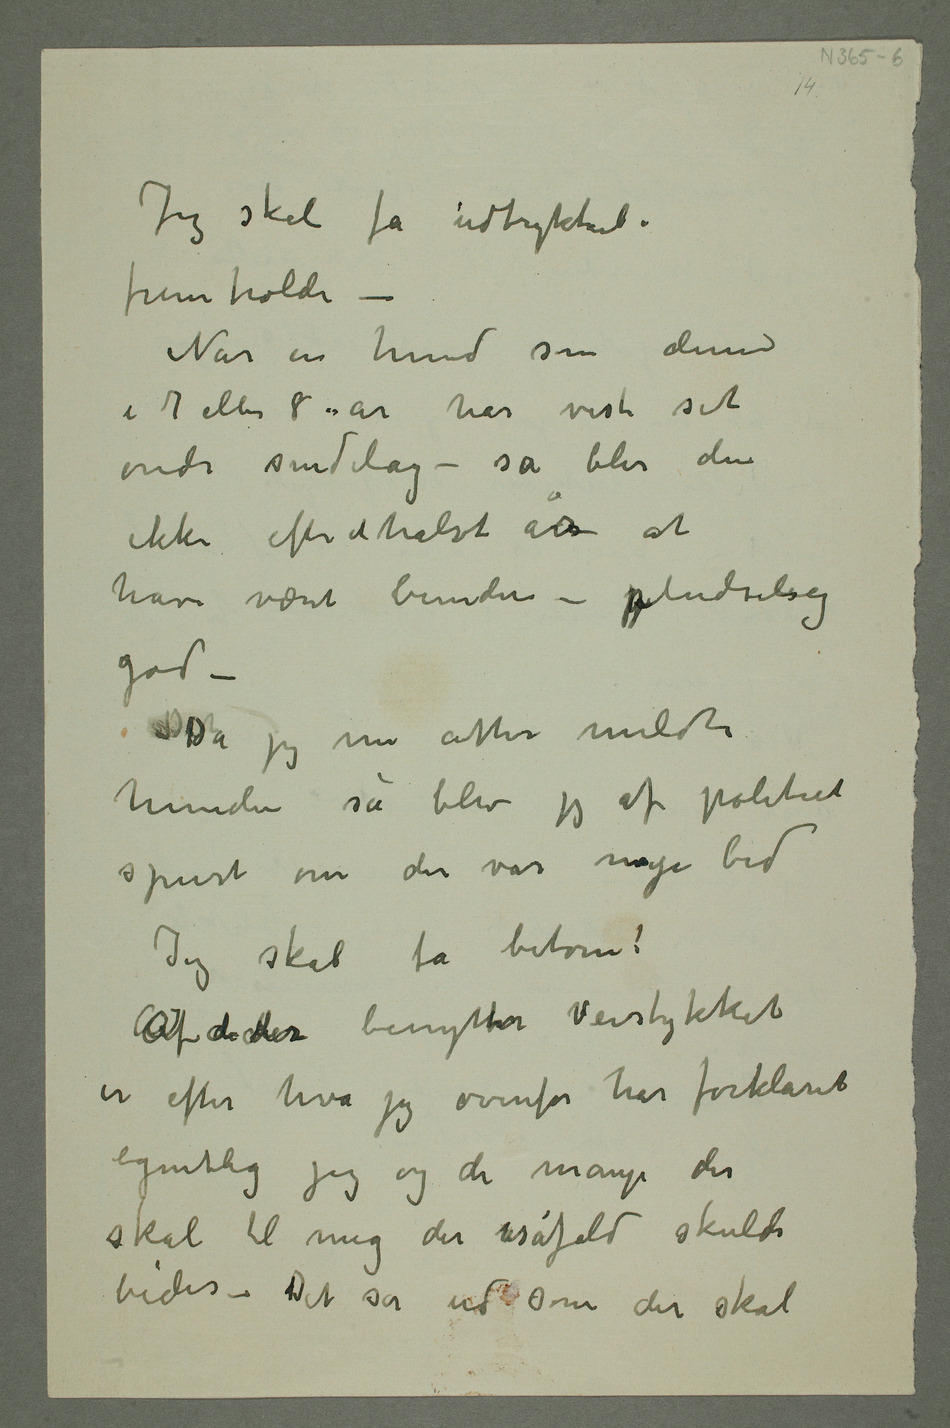 N365-6
14.
Jeg skal få udtrykkel.
fremholde —
Når en hund som denne
i 7 eller 8 år har vist sit
onde sindelag – så blir den
ikke efter et halvt år at
have vært bunden – pludselig
god –
Da jeg nu atter meldte
hunden så blev jeg af politiet
spurt om der var nye bid
Jeg skal få betone!
Af de der benytter Veistykket
er efter hva jeg ovenfor har forklaret
egentlig jeg og de mange der
skal til meg der isåfald skulde
bides – Det ser ud som der skal